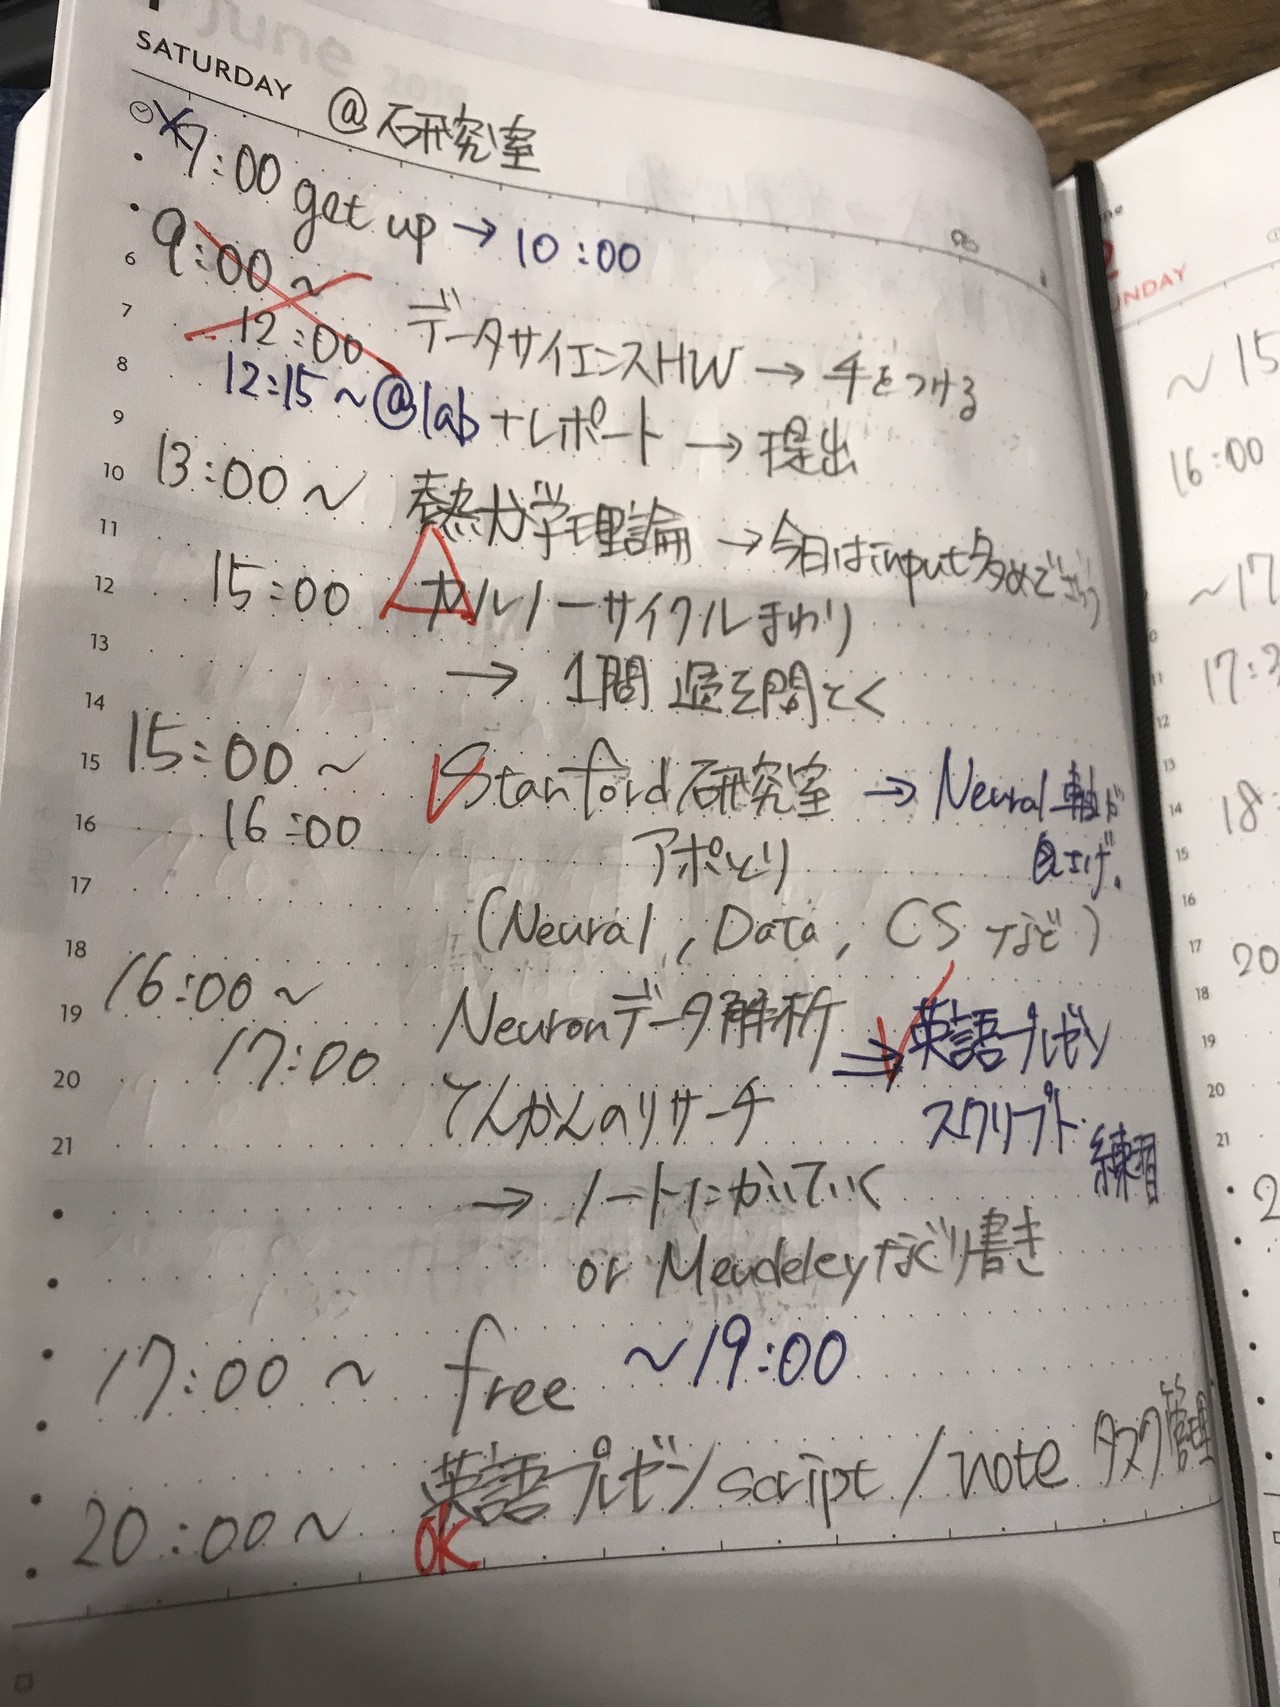 June 2019
SATURDAY @研究室
7:00 get up → 10:00
9:00 ~
12:00 データサイエンスHW → 手をつける
12:15 ~ @lab +レポート → 提出
13:00 ~ 熱力学理論 → 今日はinput多めで
15:00 カルノーサイクルまわり
→ 1問 過去問とく
15:00 ~ Stanford研究室 → Neural 軸が
16:00 アポとり 良さげ.
(Neural, Data, CS など)
16:00 ~ Neuronデータ解析 ⇒ 英語プレゼン
17:00 てんかんのリサーチ スクリプト 練習
→ ノートにかいていく
or Mendeleyなぐり書き
17:00 ~ free ~19:00
20:00 ~ 英語プレゼン script / note タスク管理
OK
6
7
8
9
10
11
12
13
14
15
16
17
18
19
20
21
SUNDAY
~ 15
16:00
~17
17:3
18
20
2
11
12
13
14
15
16
17
18
19
20
21